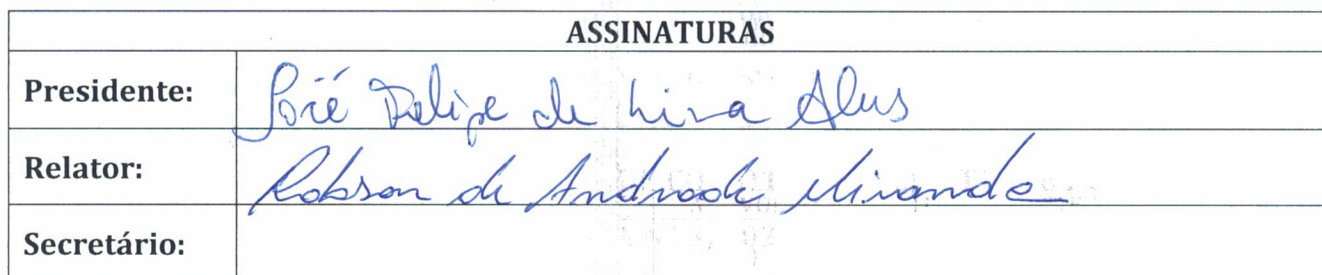 ASSINATURAS
Presidente: José Felipe de Lima Alves
Relator: Robson de Andrade Miranda
Secretário: